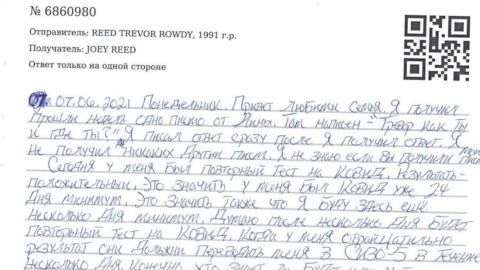 № 6860980
Отправитель: REED TREVOR ROWDY, 1991 г.р.
Получатель: JOEY REED
Ответ только на одной стороне
От 07.06.2021 Понедельник. Привет Любимая Семья. Я получил
Прошли неделя одно писмо от Лины. Там написен - "Тревор как Ты
и где Ты?" Я писал ответ сразу после Я получил ответ. Я
не получил Никаких Других Писм. Я не знаю если Вы получили
Сегодня у меня был Повторный Тест на КОВИД. Результать-
положительный. Это значить у меня был КОВИД уже 24
Дня минимум. Это значить также что Я Буду здесь ещё
Несколько Дня минимум. Думаю после несколько Дня Будет
Повторный Тест на КОВИД. Когда у меня
результат они Должны Переводать меня в СИЗО-5 в течение
несколько Дня. Конечно